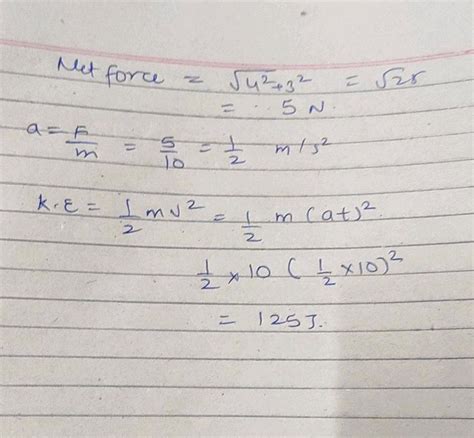 Net force = √4²+3² = √25
= 5 N
a = F/m = 5/10 = 1/2 m/s²
K.E = 1/2 mv² = 1/2 m (at)²
1/2 × 10 ( 1/2 × 10)²
= 125J.